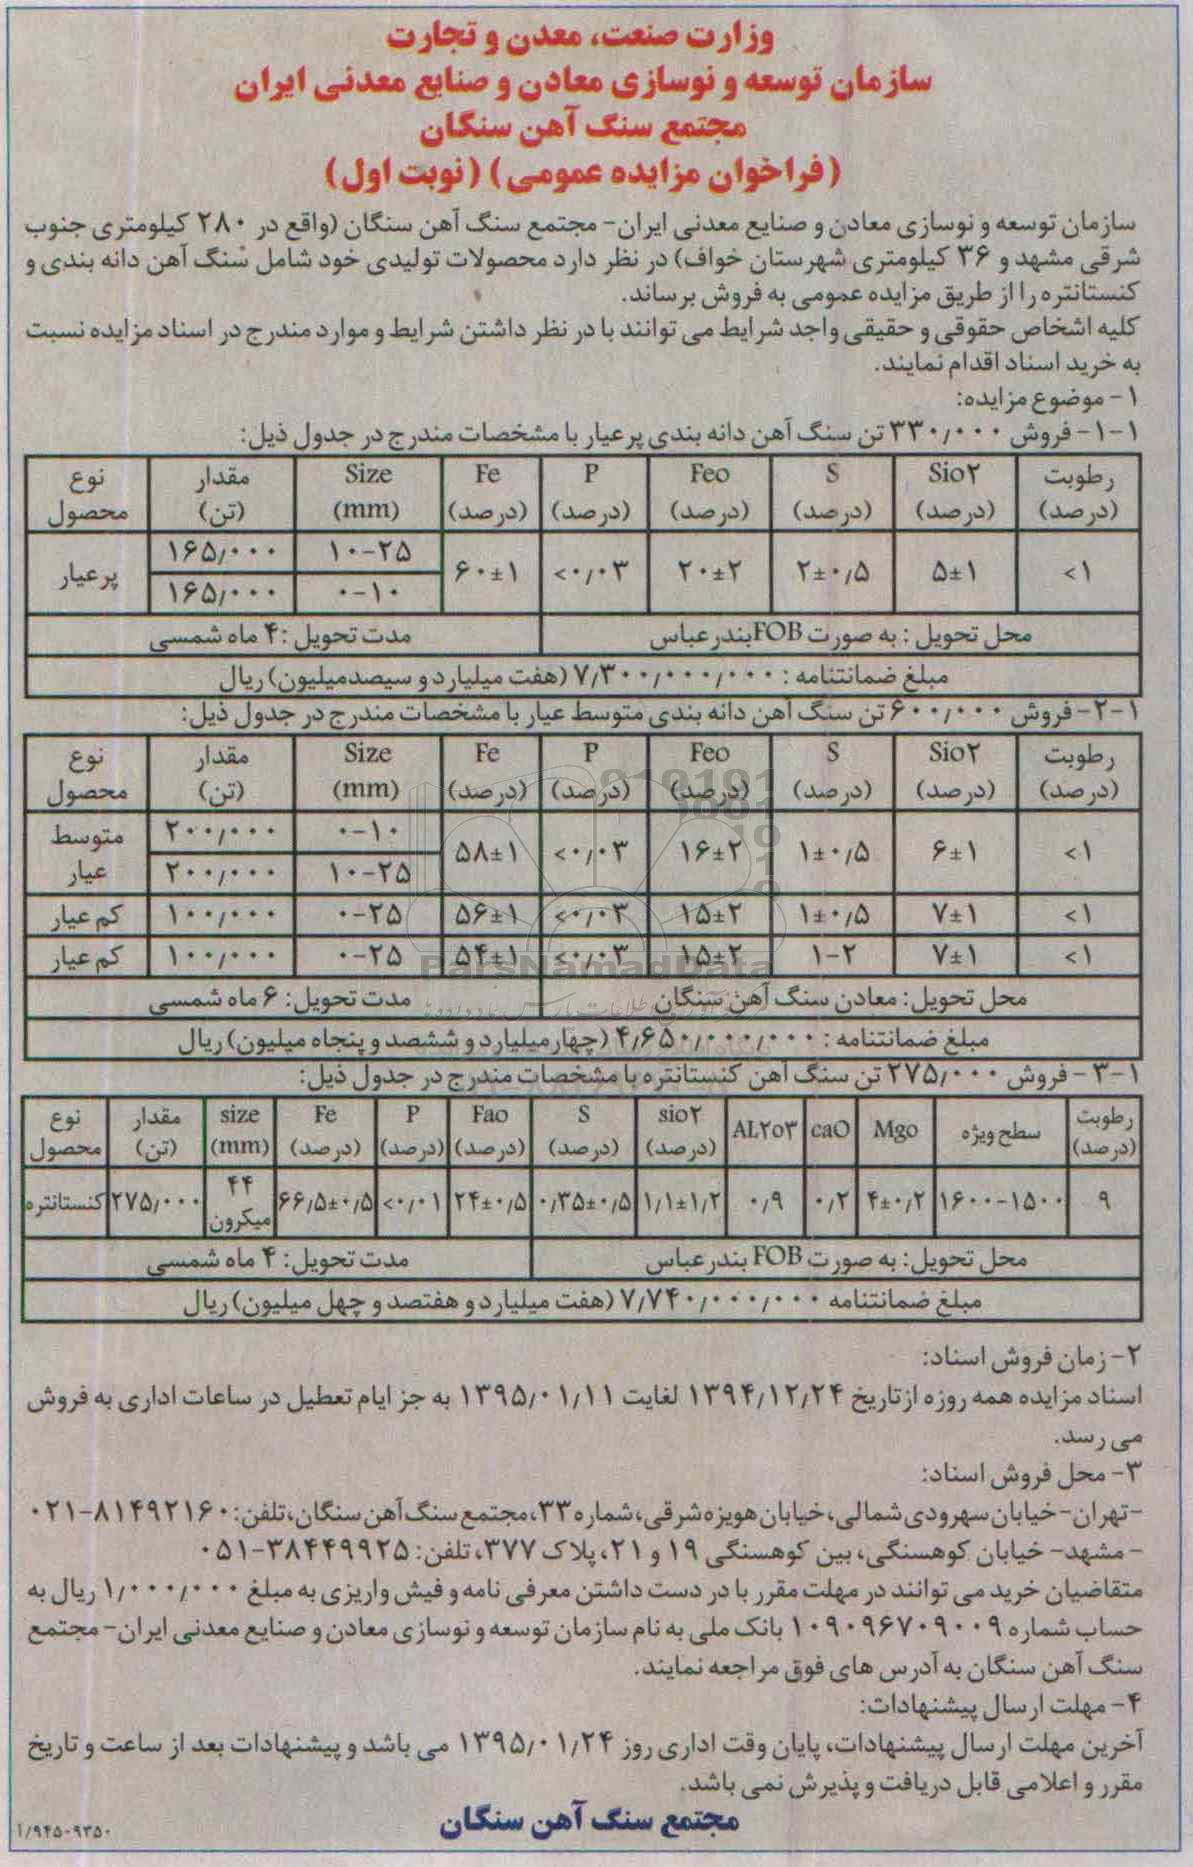 وزارت صنعت، معدن و تجارت
سازمان توسعه و نوسازی معادن و صنایع معدنی ایران
مجتمع سنگ آهن سنگان
(فراخوان مزایده عمومی) (نوبت اول)
سازمان توسعه و نوسازی معادن و صنایع معدنی ایران- مجتمع سنگ آهن سنگان (واقع در ۲۸۰ کیلومتری جنوب
شرقی مشهد و ۳۶ کیلومتری شهرستان خواف) در نظر دارد محصولات تولیدی خود شامل سنگ آهن دانه بندی و
کنستانتره را از طریق مزایده عمومی به فروش برساند.
کلیه اشخاص حقوقی و حقیقی واجد شرایط می توانند با در نظر داشتن شرایط و موارد مندرج در اسناد مزایده نسبت
به خرید اسناد اقدام نمایند.
۱- موضوع مزایده:
۱-۱- فروش ۳۳۰/۰۰۰ تن سنگ آهن دانه بندی پرعیار با مشخصات مندرج در جدول ذیل:
رطوبت (درصد) Sio۲ (درصد) S (درصد) Feo (درصد) P (درصد) Fe (درصد) Size (mm) مقدار (تن) نوع محصول
<۱ ۵±۱ ۲±۰/۵ ۲۰±۲ <۰/۰۳ ۶۰±۱ ۱۰-۲۵ ۱۶۵/۰۰۰ پرعیار
۰-۱۰ ۱۶۵/۰۰۰
محل تحویل : به صورت FOB بندرعباس مدت تحویل :۴ ماه شمسی
مبلغ ضمانتنامه : ۷/۳۰۰/۰۰۰/۰۰۰ (هفت میلیارد و سیصدمیلیون) ریال
۱-۲- فروش ۶۰۰/۰۰۰ تن سنگ آهن دانه بندی متوسط عیار با مشخصات مندرج در جدول ذیل:
رطوبت (درصد) Sio۲ (درصد) S (درصد) Feo (درصد) P (درصد) Fe (درصد) Size (mm) مقدار (تن) نوع محصول
<۱ ۶±۱ ۱±۰/۵ ۱۶±۲ <۰/۰۳ ۵۸±۱ ۰-۱۰ ۲۰۰/۰۰۰ متوسط عیار
۱۰-۲۵ ۲۰۰/۰۰۰
<۱ ۷±۱ ۱±۰/۵ ۱۵±۲ <۰/۰۳ ۵۶±۱ ۰-۲۵ ۱۰۰/۰۰۰ کم عیار
<۱ ۷±۱ ۱-۲ ۱۵±۲ <۰/۰۳ ۵۴±۱ ۰-۲۵ ۱۰۰/۰۰۰ کم عیار
ParsNamadData
محل تحویل : معادن سنگ آهن سنگان مدت تحویل: ۶ ماه شمسی
مبلغ ضمانتنامه : ۴/۶۵۰/۰۰۰/۰۰۰ (چهارمیلیارد و ششصد و پنجاه میلیون) ریال
۱-۳- فروش ۲۷۵/۰۰۰ تن سنگ آهن کنستانتره با مشخصات مندرج در جدول ذیل:
رطوبت (درصد) سطح ویژه Mgo caO AL۲o۳ sio۲ (درصد) S (درصد) Fao (درصد) P (درصد) Fe (درصد) size (mm) مقدار (تن) نوع محصول
۹ ۱۶۰۰-۱۵۰۰ ۴±۰/۲ ۰/۲ ۰/۹ ۱/۱±۱/۲ ۰/۳۵±۰/۵ ۲۴±۰/۵ <۰/۰۱ ۶۶/۵±۰/۵ ۴۴ میکرون ۲۷۵/۰۰۰ کنستانتره
محل تحویل: به صورت FOB بندرعباس مدت تحویل: ۴ ماه شمسی
مبلغ ضمانتنامه ۷/۷۴۰/۰۰۰/۰۰۰ (هفت میلیارد و هفتصد و چهل میلیون) ریال
۲- زمان فروش اسناد:
اسناد مزایده همه روزه ازتاریخ ۱۳۹۴/۱۲/۲۴ لغایت ۱۳۹۵/۰۱/۱۱ به جز ایام تعطیل در ساعات اداری به فروش
می رسد.
۳- محل فروش اسناد:
-تهران- خیابان سهرودی شمالی، خیابان هویزه شرقی، شماره ۳۳، مجتمع سنگ آهن سنگان، تلفن: ۸۱۴۹۲۱۶۰-۰۲۱
- مشهد- خیابان کوهسنگی، بین کوهسنگی ۱۹ و ۲۱، پلاک ۳۷۷، تلفن: ۳۸۴۴۹۹۲۵-۰۵۱
متقاضیان خرید می توانند در مهلت مقرر با در دست داشتن معرفی نامه و فیش واریزی به مبلغ ۱/۰۰۰/۰۰۰ ریال به
حساب شماره ۱۰۹۰۹۶۷۰۹۰۰۹ بانک ملی به نام سازمان توسعه و نوسازی معادن و صنایع معدنی ایران- مجتمع
سنگ آهن سنگان به آدرس های فوق مراجعه نمایند.
۴- مهلت ارسال پیشنهادات:
آخرین مهلت ارسال پیشنهادات، پایان وقت اداری روز ۱۳۹۵/۰۱/۲۴ می باشد و پیشنهادات بعد از ساعت و تاریخ
مقرر و اعلامی قابل دریافت و پذیرش نمی باشد.
مجتمع سنگ آهن سنگان
۱/۹۴۵۰۹۳۵۰